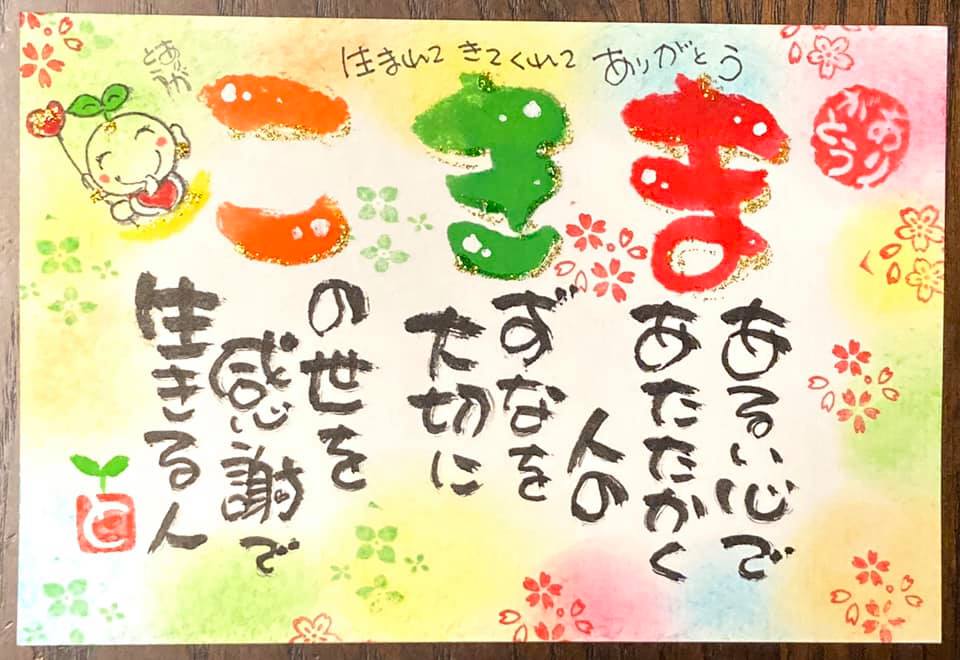 生まれて きてくれて ありがとう
ありが
とう
あり
がとう
まきこ
あるい心で
あたたかく
人の
ずなを
大切に
の世を
感謝で
生きる人
と